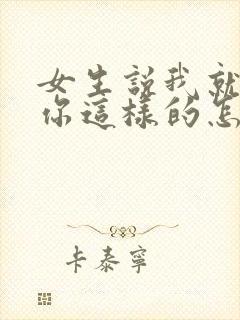 女生説我就
你這樣的怎
卡泰寧